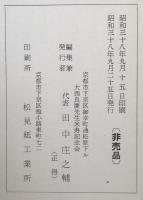 昭和三十八年九月十五日印刷
昭和三十八年九月二十五日発行
〔非売品〕
京都市下京区御幸町通松原下ル
大西良慶先生米寿記念会
編集兼
発行者
代表 田中庄之輔
(正得)
京都市下京区
印刷所 松見紙工業所